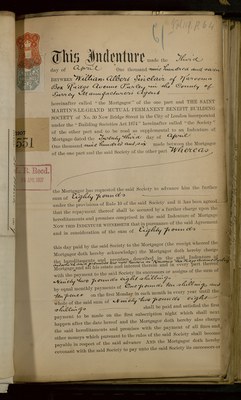 This Indenture made the Third
day of April One thousand nine hundred and seven
BETWEEN William Albert Sinclair of
Avenue Purley in the County of
Surrey Manufacturers Agent
hereinafter called "the Mortgagor" of the one part and THE SAINT
MARTIN'S-LE-GRAND MUTUAL PERMANENT BENEFIT BUILDING
SOCIETY of No. New Bridge Street in the City of London Incorporated
under the "Building Societies Act 1874" hereinafter called "the Society"
of the other part and to be read as supplemental to an Indenture of
Mortgage dated the day of April
One thousand nine hundred and six made between the Mortgagor
of the one part and the said Society of the other part Whereas
551
Reed.
the Mortgagor has requested the said Society to advance him the further
sum of Eighty pounds
under the provisions of Rule of the said Society and it has been agreed
that the repayment thereof shall be secured by a further charge upon the
hereditaments and premises comprised in the said Indenture of Mortgage
NOW THIS INDENTURE WITNESSETH that in pursuance of the said Agreement
and in consideration of the sum of Eighty pounds
this day paid by the said Society to the Mortgagor (the receipt whereof the
Mortgagor doth hereby acknowledge) the Mortgagor doth hereby charge
the hereditaments and premises described in the said Indenture of
with the payment to the said Society its successors or assigns of the sum of
Ninety two pounds eight shillings
by equal monthly payments of shillings and
pence on the first Monday in each month in every year until the
whole of the said sum of Ninety two pounds eight
shillings shall be paid and satisfied the first
payment to be made on the first subscription night which shall next
happen after the date hereof and the Mortgagor doth hereby also charge
the said hereditaments and premises with the payment of all fines and
other moneys which pursuant to the rules of the said Society shall become
payable in respect of the said advance And the Mortgagor doth hereby
covenant with the said Society to pay unto the said Society its successors or